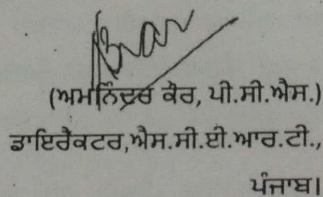 (ਅਮਨਿੰਦਰ ਕੌਰ, ਪੀ.ਸੀ.ਐਸ.)
ਡਾਇਰੈਕਟਰ,ਐਸ.ਸੀ.ਈ.ਆਰ.ਟੀ.,
ਪੰਜਾਬ।